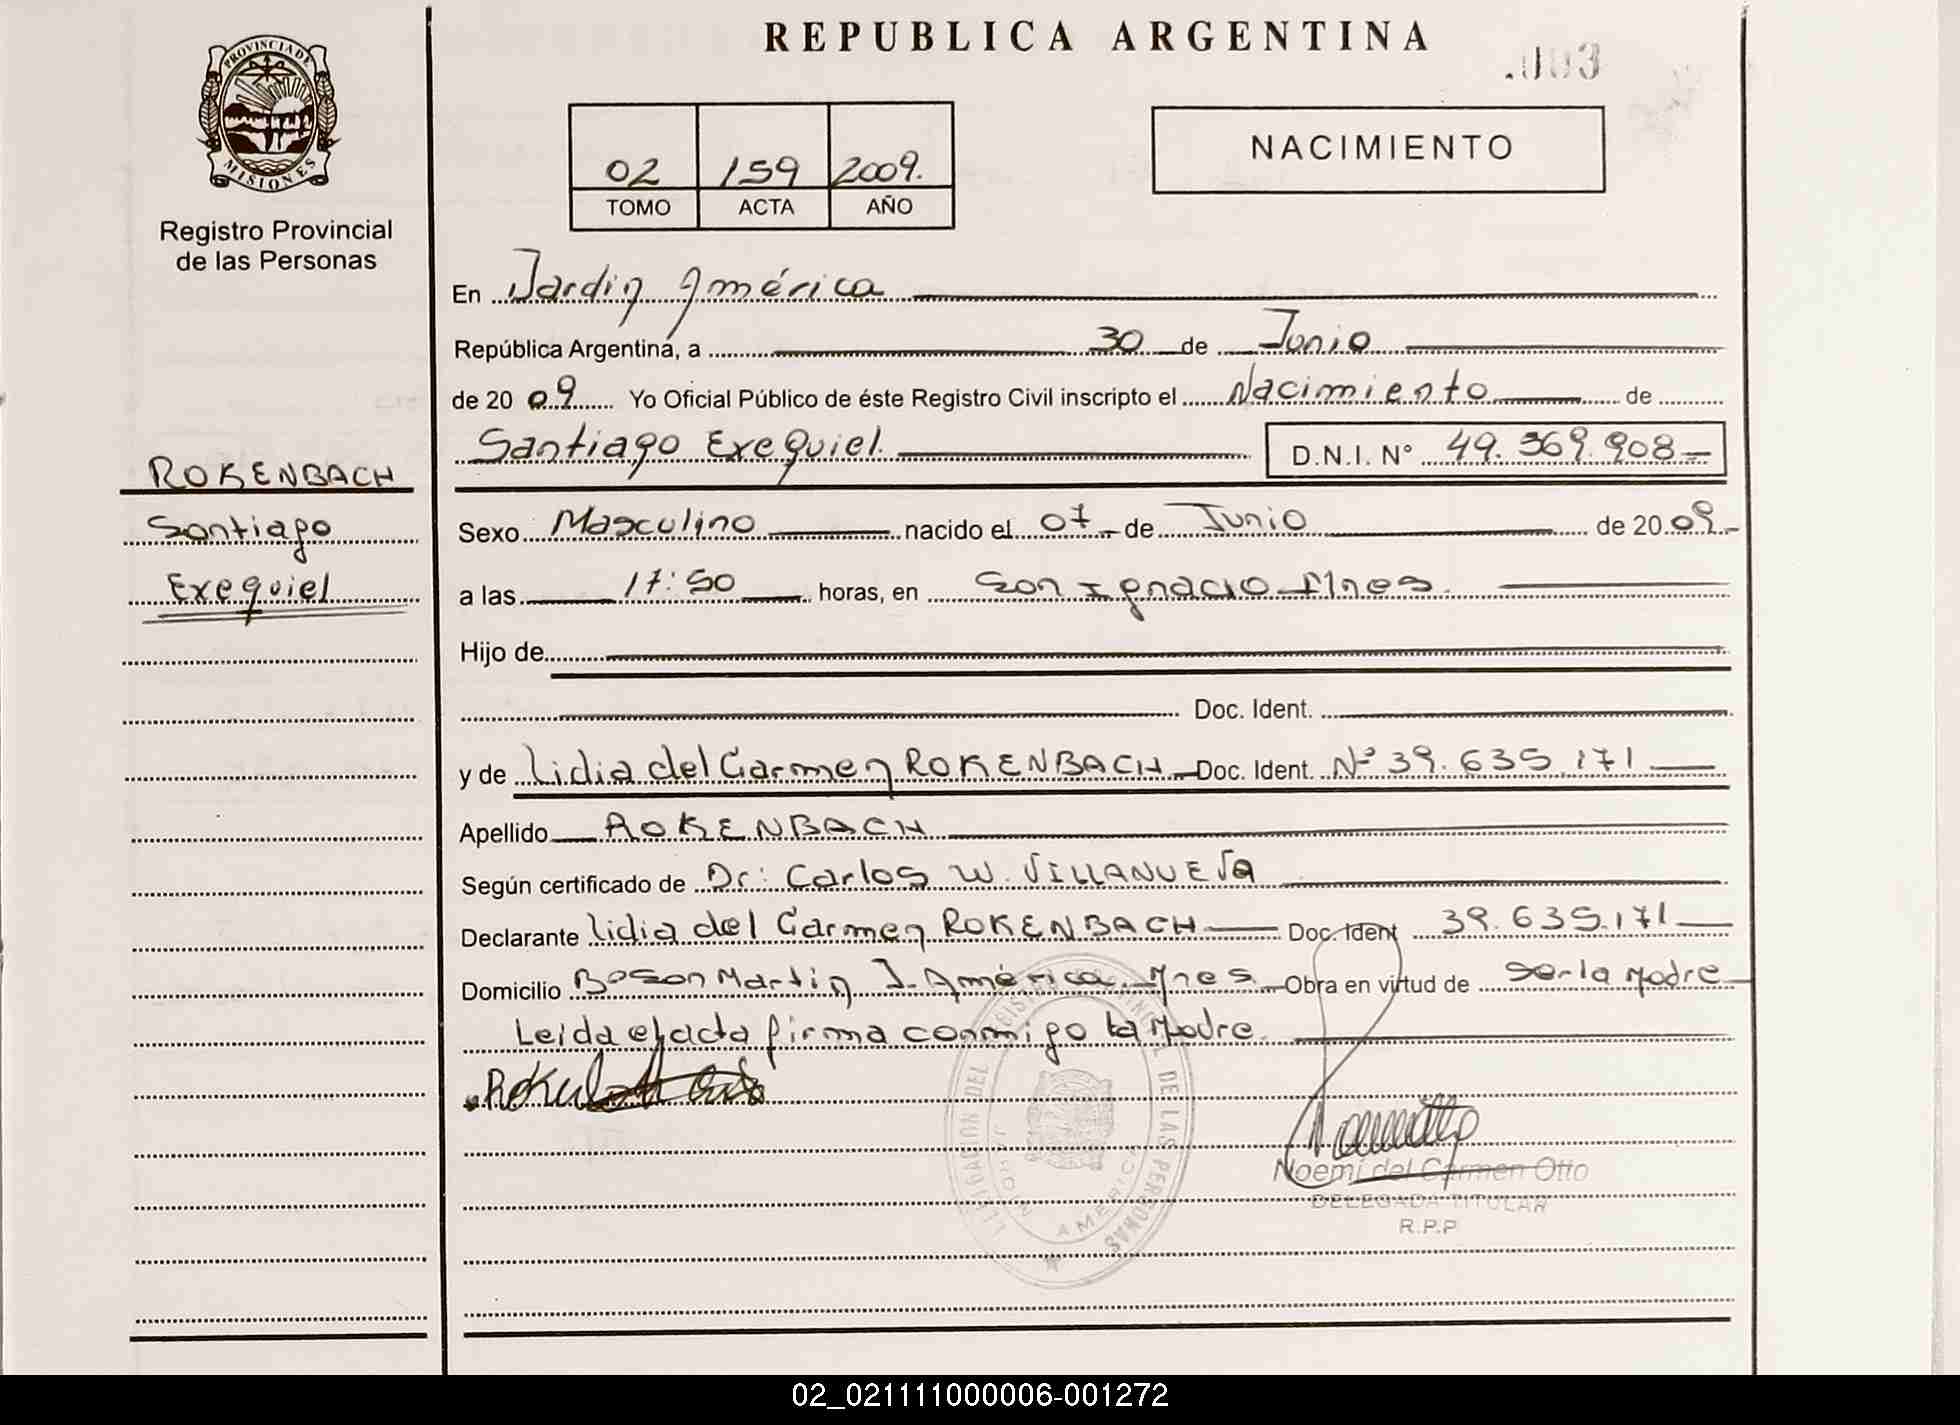 REPUBLICA ARGENTINA
.003
PROVINCIA DE
MISIONES
Registro Provincial
de las Personas
NACIMIENTO
02 159 2009.
TOMO ACTA AÑO
En Jardin América
República Argentina, a 30 de Junio
de 2009 Yo Oficial Público de éste Registro Civil inscripto el Nacimiento de
Santiago Exequiel. D.N.I. Nº 49.369.908
ROKENBACH
Santiago
Exequiel
Sexo Masculino nacido el 07 de Junio de 2009
a las 17:50 horas, en San Ignacio Mnes.
Hijo de
Doc. Ident.
y de Lidia del Carmen ROKENBACH Doc. Ident. Nº 39.635.171
Apellido ROKENBACH
Según certificado de Dr: Carlos W. VILLANUEVA
Declarante Lidia del Carmen ROKENBACH Doc. Ident 39.635.171
Domicilio Martin J. América. Mnes. Obra en virtud de ser la Madre
Leida el acta firma conmigo la Madre.
DELEGACION DEL REGISTRO PROVINCIAL DE LAS PERSONAS
JARDIN AMERICA
Noemí del Carmen Otto
DELEGADA TITULAR
R.P.P
02_021111000006-001272